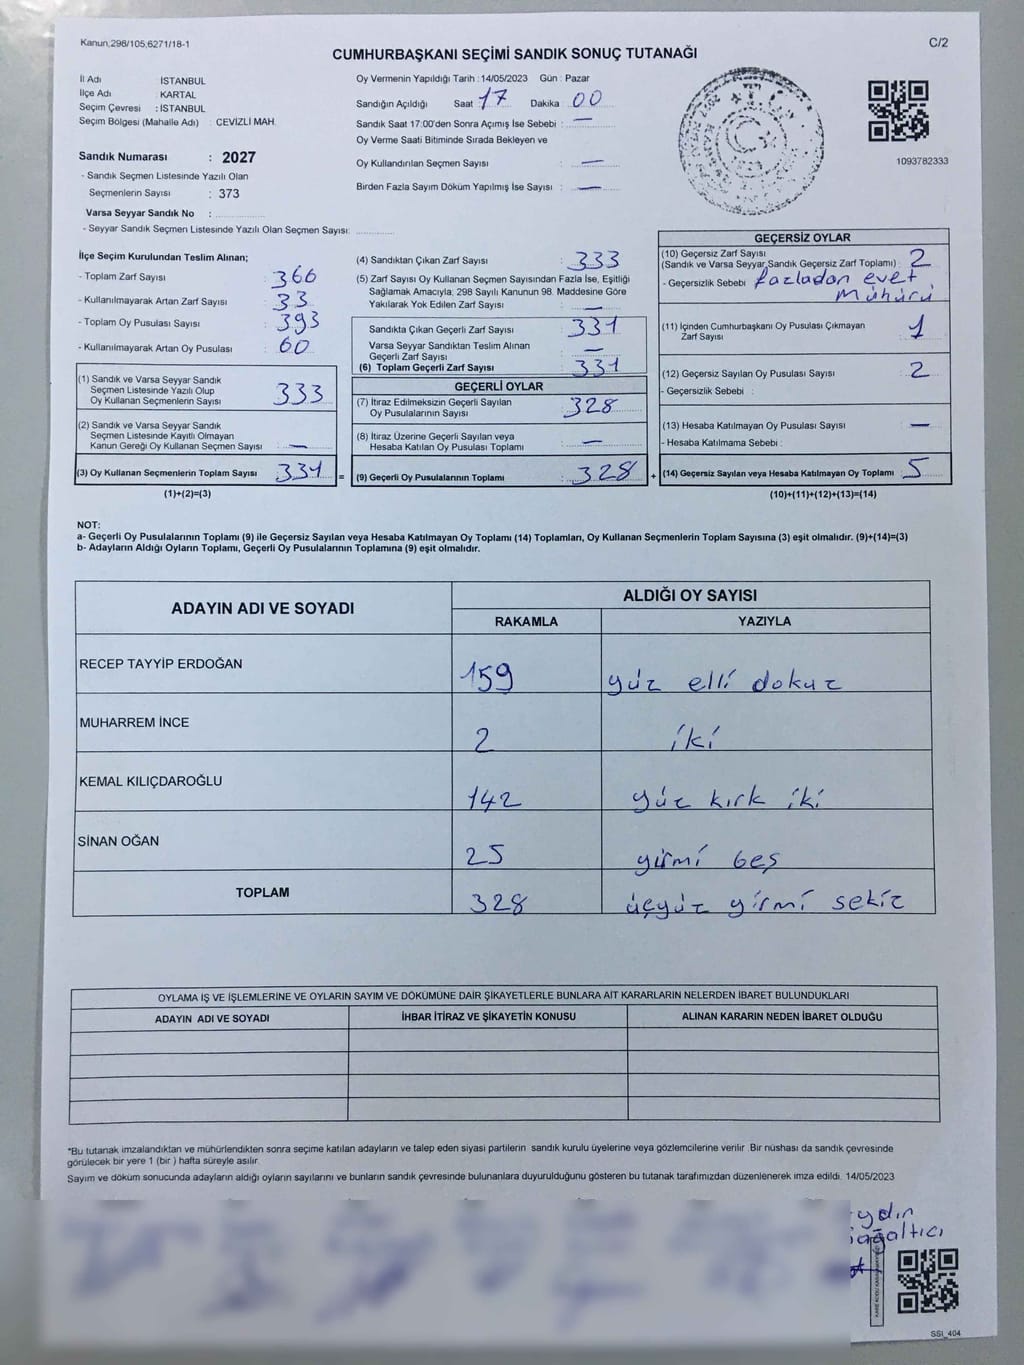 Kanun,298/105,6271/18-1
C/2
CUMHURBAŞKANI SEÇİMİ SANDIK SONUÇ TUTANAĞI
İl Adı : İSTANBUL
İlçe Adı : KARTAL
Seçim Çevresi : İSTANBUL
Seçim Bölgesi (Mahalle Adı) : CEVİZLİ MAH.
Sandık Numarası : 2027
- Sandık Seçmen Listesinde Yazılı Olan
Seçmenlerin Sayısı : 373
Varsa Seyyar Sandık No :
- Seyyar Sandık Seçmen Listesinde Yazılı Olan Seçmen Sayısı:
Oy Vermenin Yapıldığı Tarih : 14/05/2023 Gün : Pazar
Sandığın Açıldığı Saat : 17 Dakika : 00
Sandık Saat 17:00'den Sonra Açımış İse Sebebi : —
Oy Verme Saati Bitiminde Sırada Bekleyen ve
Oy Kullandırılan Seçmen Sayısı : —
Birden Fazla Sayım Döküm Yapılmış İse Sayısı : —
1093782333
İlçe Seçim Kurulundan Teslim Alınan;
- Toplam Zarf Sayısı : 366
- Kullanılmayarak Artan Zarf Sayısı : 33
- Toplam Oy Pusulası Sayısı : 393
- Kullanılmayarak Artan Oy Pusulası : 60
(1) Sandık ve Varsa Seyyar Sandık
Seçmen Listesinde Yazılı Olup
Oy Kullanan Seçmenlerin Sayısı : 333
(2) Sandık ve Varsa Seyyar Sandık
Seçmen Listesinde Kayıtlı Olmayan
Kanun Gereği Oy Kullanan Seçmen Sayısı : —
(3) Oy Kullanan Seçmenlerin Toplam Sayısı : 331 =
(1)+(2)=(3)
(4) Sandıktan Çıkan Zarf Sayısı : 333
(5) Zarf Sayısı Oy Kullanan Seçmen Sayısından Fazla İse, Eşitliği
Sağlamak Amacıyla; 298 Sayılı Kanunun 98. Maddesine Göre
Yakılarak Yok Edilen Zarf Sayısı : —
Sandıkta Çıkan Geçerli Zarf Sayısı : 331
Varsa Seyyar Sandıktan Teslim Alınan
Geçerli Zarf Sayısı : —
(6) Toplam Geçerli Zarf Sayısı : 331
GEÇERLİ OYLAR
(7) İtiraz Edilmeksizin Geçerli Sayılan
Oy Pusulalarının Sayısı : 328
(8) İtiraz Üzerine Geçerli Sayılan veya
Hesaba Katılan Oy Pusulası Toplamı : —
(9) Geçerli Oy Pusulalarının Toplamı : 328 +
GEÇERSİZ OYLAR
(10) Geçersiz Zarf Sayısı
(Sandık ve Varsa Seyyar Sandık Geçersiz Zarf Toplamı) : 2
- Geçersizlik Sebebi : fazladan evet
mühürü
(11) İçinden Cumhurbaşkanı Oy Pusulası Çıkmayan
Zarf Sayısı : 1
(12) Geçersiz Sayılan Oy Pusulası Sayısı : 2
- Geçersizlik Sebebi :
(13) Hesaba Katılmayan Oy Pusulası Sayısı : —
- Hesaba Katılmama Sebebi :
(14) Geçersiz Sayılan veya Hesaba Katılmayan Oy Toplamı : 5
(10)+(11)+(12)+(13)=(14)
NOT:
a- Geçerli Oy Pusulalarının Toplamı (9) ile Geçersiz Sayılan veya Hesaba Katılmayan Oy Toplamı (14) Toplamları, Oy Kullanan Seçmenlerin Toplam Sayısına (3) eşit olmalıdır. (9)+(14)=(3)
b- Adayların Aldığı Oyların Toplamı, Geçerli Oy Pusulalarının Toplamına (9) eşit olmalıdır.
ADAYIN ADI VE SOYADI
ALDIĞI OY SAYISI
RAKAMLA YAZIYLA
RECEP TAYYİP ERDOĞAN 159 yüz elli dokuz
MUHARREM İNCE 2 iki
KEMAL KILIÇDAROĞLU 142 yüz kırk iki
SİNAN OĞAN 25 yirmi beş
TOPLAM 328 üçyüz yirmi sekiz
OYLAMA İŞ VE İŞLEMLERİNE VE OYLARIN SAYIM VE DÖKÜMÜNE DAİR ŞİKAYETLERLE BUNLARA AİT KARARLARIN NELERDEN İBARET BULUNDUKLARI
ADAYIN ADI VE SOYADI İHBAR İTİRAZ VE ŞİKAYETİN KONUSU ALINAN KARARIN NEDEN İBARET OLDUĞU
*Bu tutanak imzalandıktan ve mühürlendikten sonra seçime katılan adayların ve talep eden siyasi partilerin sandık kurulu üyelerine veya gözlemcilerine verilir. Bir nüshası da sandık çevresinde
görülecek bir yere 1 (bir) hafta süreyle asılır.
Sayım ve döküm sonucunda adayların aldığı oyların sayılarını ve bunların sandık çevresinde bulunanlara duyurulduğunu gösteren bu tutanak tarafımızdan düzenlenerek imza edildi. 14/05/2023
SSI_404